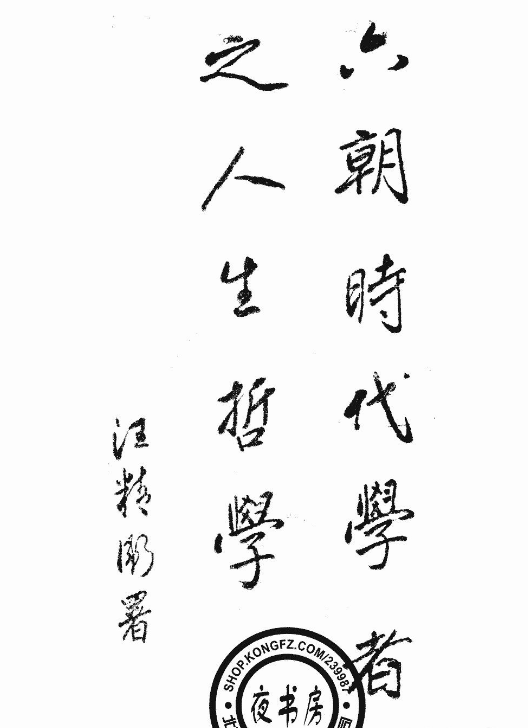 六朝時代學者
之人生哲學
汪精衛署
SHOP.KONGFZ.COM/239987
夜书房